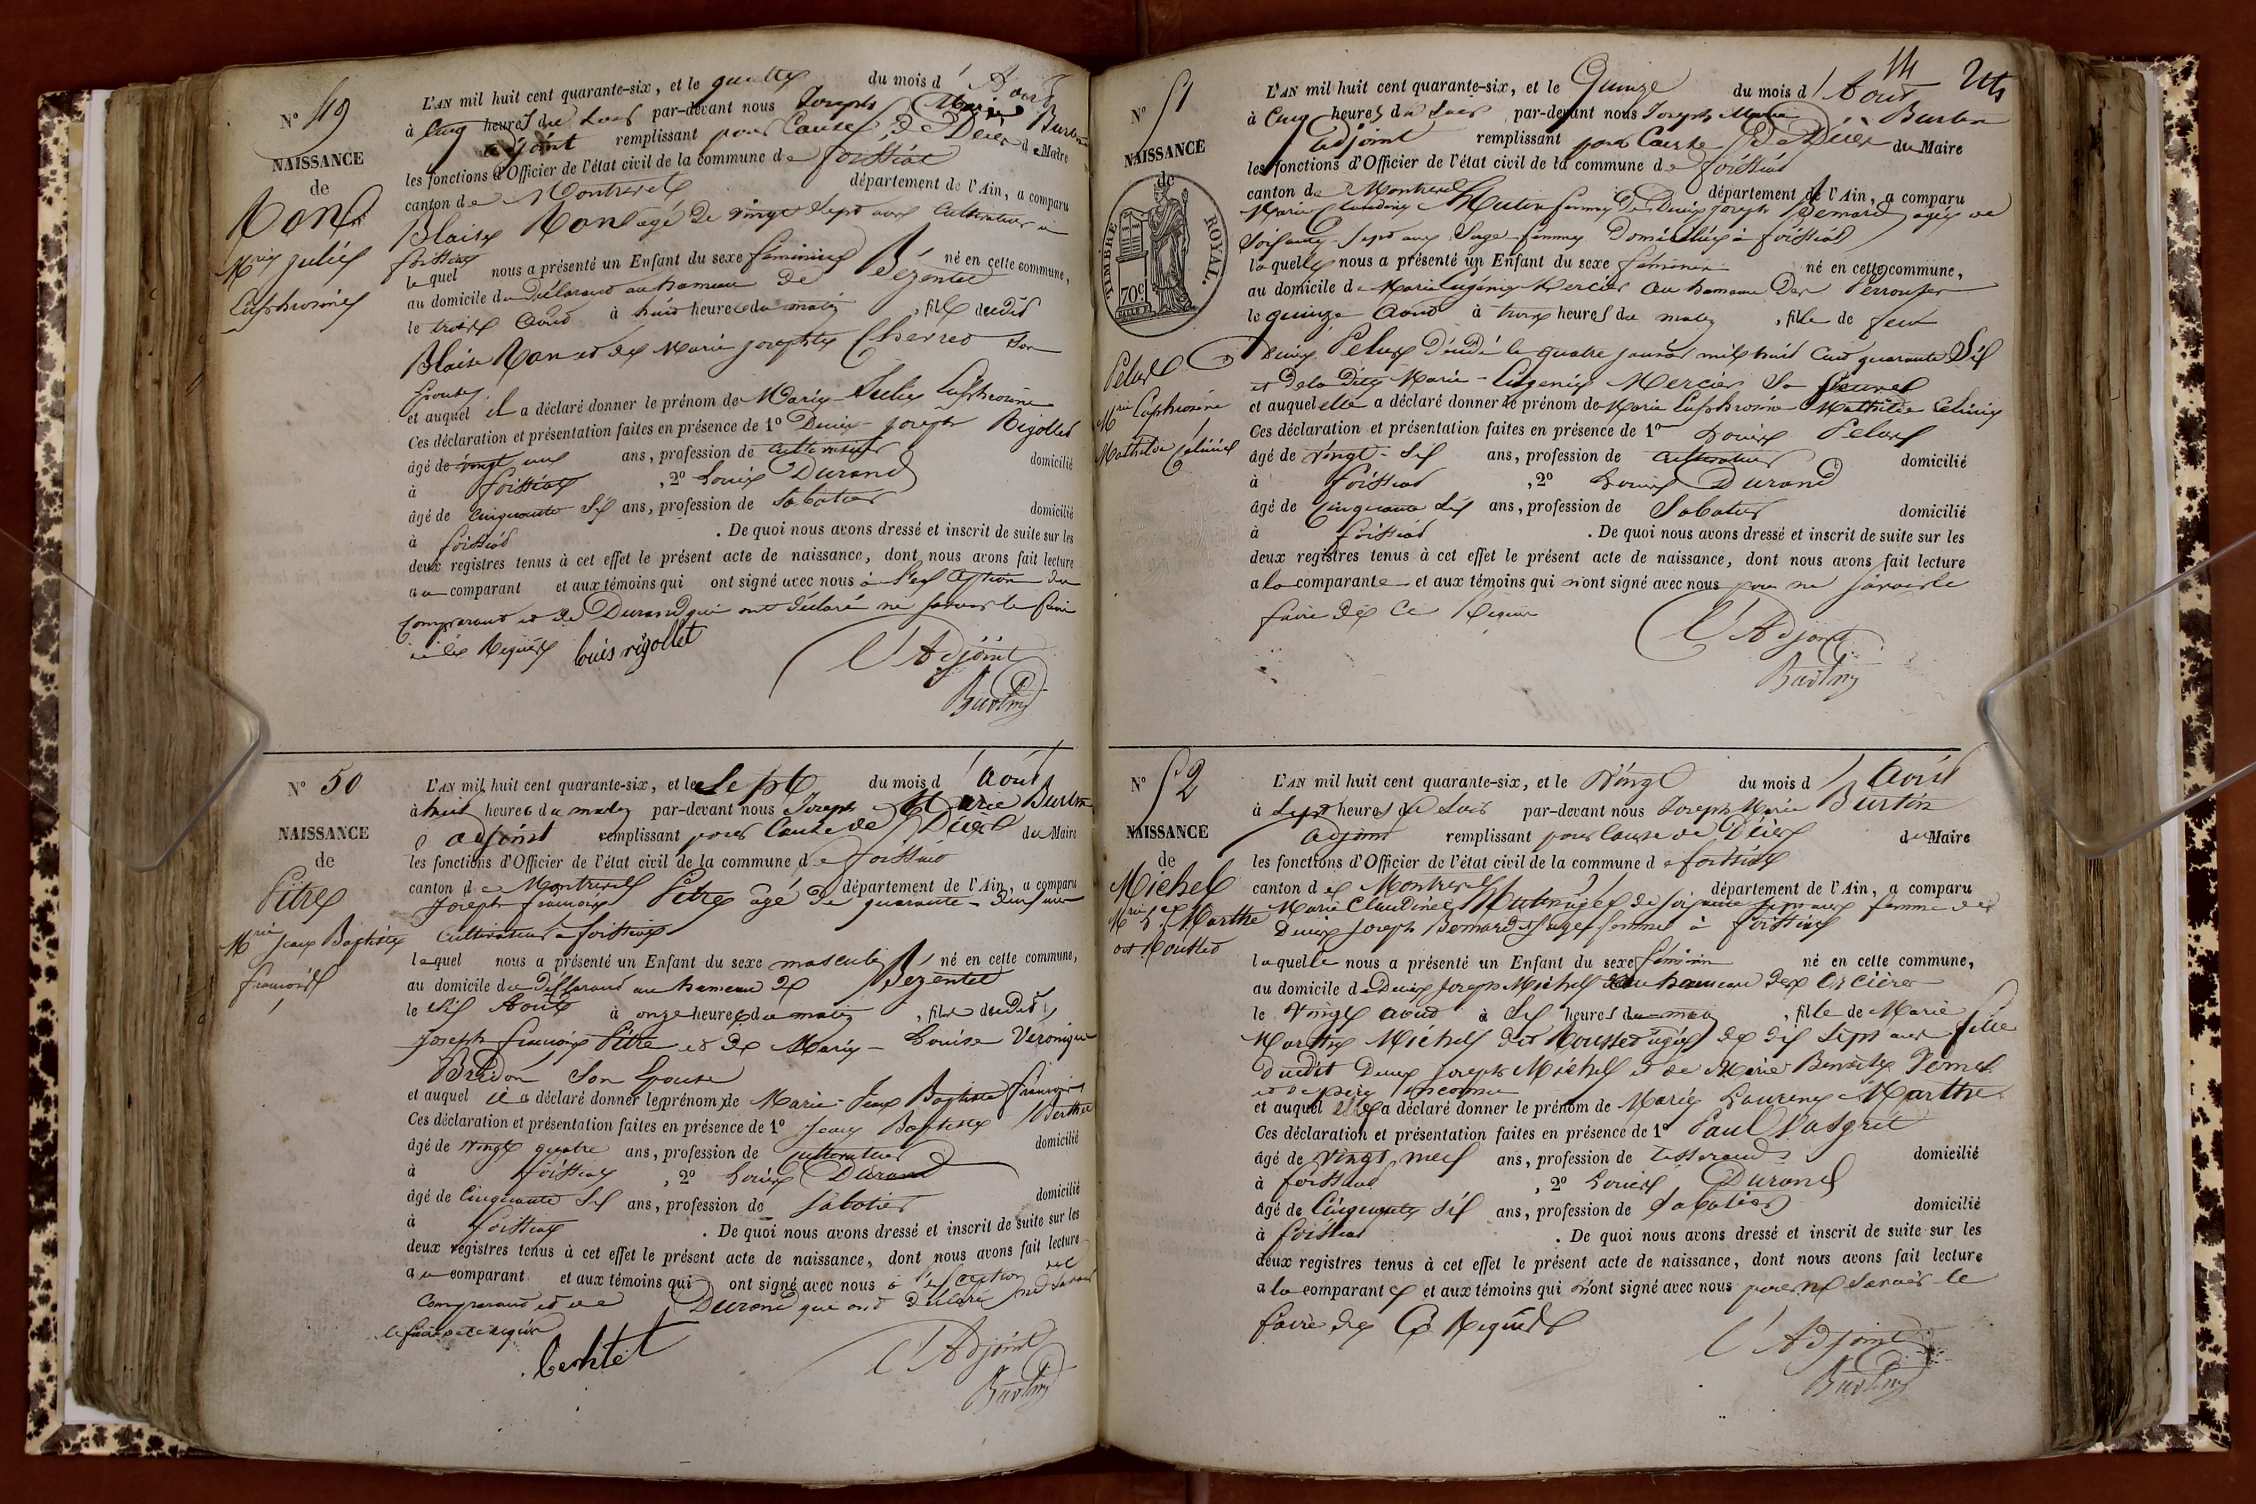 N° 49
NAISSANCE
de
Mrie Julie
Euphrosine
L'AN mil huit cent quarante-six, et le quatre du mois d'Aout
à cinq heures du soir par-devant nous Joseph Marie Burtin
adjoint remplissant pour Cause de Décès du Maire
les fonctions d'Officier de l'état civil de la commune de foissiat
canton de Montrevel département de l'Ain, a comparu
Blaise âgé de vingt sept ans Cultivateur à
foissiat
lequel nous a présenté un Enfant du sexe féminin né en cette commune,
au domicile du Déclarant au hameau de Bézentet
le trois Aout à huit heures du matin, fille dudit
Blaise et de Marie josephte son
Epouse
et auquel il a déclaré donner le prénom de Marie Julie Euphrosine
Ces déclaration et présentation faites en présence de 1° Denis-joseph Rigollet
âgé de vingt ans, profession de cultivateur domicilié
à foissiat, 2° Louis Durand
âgé de cinquante six ans, profession de Sabotier domicilié
à foissiat. De quoi nous avons dressé et inscrit de suite sur les
deux registres tenus à cet effet le présent acte de naissance, dont nous avons fait lecture
au comparant et aux témoins qui ont signé avec nous à l'exception du
Comparant et de Durand qui ont déclaré ne savoir le faire
de ce Requis louis rigollet
L'Adjoint
Burtin
N° 50
NAISSANCE
de
Pitre
Mrie Jean Baptiste
francois
L'AN mil huit cent quarante-six, et le Sept du mois d'Aout
à huit heures du matin par-devant nous Joseph Marie Burtin
adjoint remplissant pour Cause de Décès du Maire
les fonctions d'Officier de l'état civil de la commune de foissiat
canton de Montrevel département de l'Ain, a comparu
Joseph francois Pitre âgé de quarante-deux ans
Cultivateur à foissiat
lequel nous a présenté un Enfant du sexe masculin né en cette commune,
au domicile du Déclarant au hameau de Bézentet
le six Aout à onze heures du matin, fils dudit
Joseph francois Pitre et de Marie-Louise Véronique
Son Epouse
et auquel il a déclaré donner les prénom de Marie-Jean Baptiste francois
Ces déclaration et présentation faites en présence de 1° Jean Baptiste
âgé de vingt quatre ans, profession de cultivateur domicilié
à foissiat, 2° Louis Durand
âgé de Cinquante six ans, profession de Sabotier domicilié
à foissiat. De quoi nous avons dressé et inscrit de suite sur les
deux registres tenus à cet effet le présent acte de naissance, dont nous avons fait lecture
au comparant et aux témoins qui ont signé avec nous à l'exception du
Comparant et de Durand qui ont déclaré ne savoir
le faire de ce requis
L'Adjoint
Burtin
N° 51
NAISSANCE
de
TIMBRE ROYAL.
70c
Pelux
Mrie Euphrosine
Mathilde Célinie
L'AN mil huit cent quarante-six, et le Quinze du mois d'Aout
à Cinq heures du Soir par-devant nous Joseph Marie Burtin
adjoint remplissant pour Cause de Décès du Maire
les fonctions d'Officier de l'état civil de la commune de foissiat
canton de Montrevel département de l'Ain, a comparu
Marie Claudine femme de Denis Joseph agée de
Soixante-Sept ans Sage-femme Domiciliée à foissiat
laquelle nous a présenté un Enfant du sexe féminin né en cette commune,
au domicile de Marie Eugénie Mercier au hameau Des
le quinze Aout à trois heures du matin, fille de feu
Denis Pelux Décédé le quatre janvier mil huit Cent quarante Six
et De la Dite Marie-Eugénie Mercier Sa
et auquel elle a déclaré donner le prénom de Marie Euphrosine Mathilde Célinie
Ces déclaration et présentation faites en présence de 1° Louis Pelux
âgé de vingt-six ans, profession de cultivateur domicilié
à foissiat, 2° Louis Durand
âgé de Cinquante six ans, profession de Sabotier domicilié
à foissiat. De quoi nous avons dressé et inscrit de suite sur les
deux registres tenus à cet effet le présent acte de naissance, dont nous avons fait lecture
a la comparante et aux témoins qui n'ont signé avec nous pour ne savoir le
faire de ce Requis
L'Adjoint
Burtin
N° 52
NAISSANCE
de
Michel
Marthe
L'AN mil huit cent quarante-six, et le Vingt du mois d'Aout
à Sept heures du Soir par-devant nous Joseph Marie Burtin
adjoint remplissant pour Cause de Décès du Maire
les fonctions d'Officier de l'état civil de la commune de foissiat
canton de Montrevel département de l'Ain, a comparu
Marie Claudine agée de soixante sept ans femme de
Denis Joseph Sage femme à foissiat
laquelle nous a présenté un Enfant du sexe féminin né en cette commune,
au domicile de Denis Joseph Michel au hameau des
le Vingt aout à Six heures du matin, fille de Marie
Marthe Michel dit agée de dix Sept ans fille
dudit Denis Joseph Michel et de Marie
et de père inconnu
et auquel elle a déclaré donner le prénom de Marie Laurence Marthe
Ces déclaration et présentation faites en présence de 1° Paul
âgé de vingt neuf ans, profession de tisserand domicilié
à foissiat, 2° Louis Durand
âgé de Cinquante six ans, profession de Sabotier domicilié
à foissiat. De quoi nous avons dressé et inscrit de suite sur les
deux registres tenus à cet effet le présent acte de naissance, dont nous avons fait lecture
a la comparante et aux témoins qui n'ont signé avec nous pour ne savoir le
faire de Ce Requis
L'Adjoint
Burtin